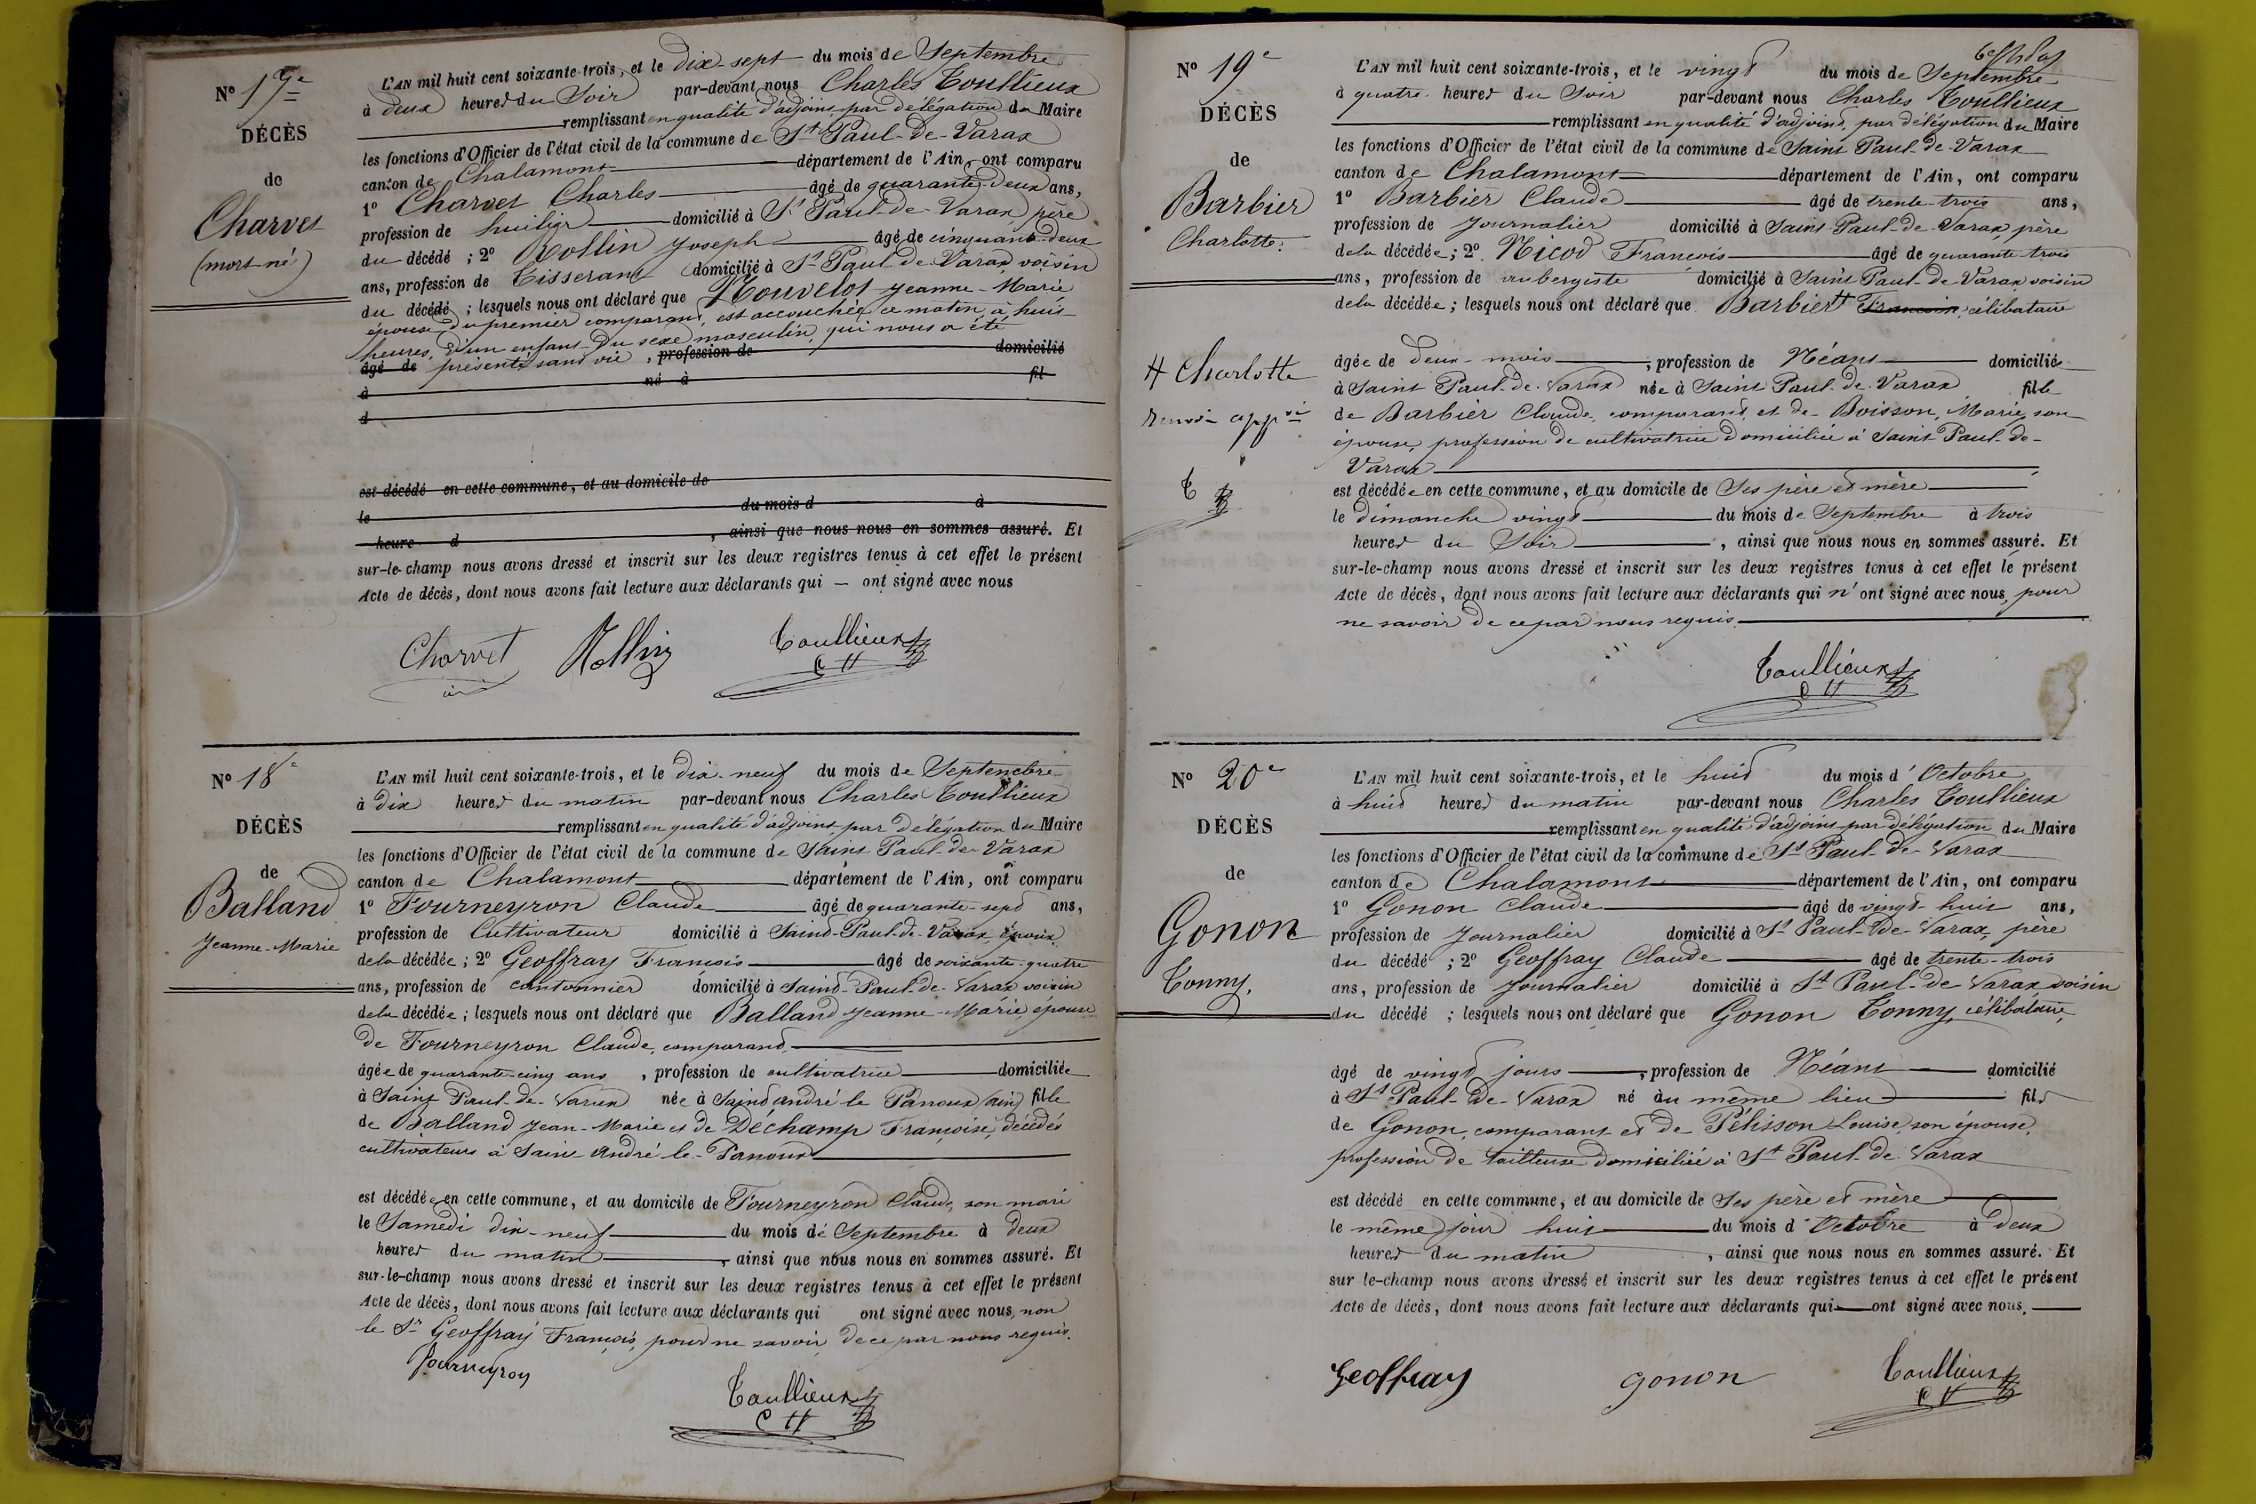 N° 17e
DÉCÈS
de
Charvet
(mort-né)
L'AN mil huit cent soixante-trois, et le dix-sept du mois de Septembre
à deux heures du Soir par-devant nous Charles Toullieux
remplissant en qualité d'adjoint par délégation du Maire
les fonctions d'Officier de l'état civil de la commune de St Paul-de-Varax
canton de Chalamont département de l'Ain, ont comparu
1° Charvet Charles âgé de quarante-deux ans,
profession de huilier domicilié à St Paul-de-Varax père
du décédé ; 2° Rollin Joseph âgé de cinquante-deux
ans, profession de Tisserand domicilié à St Paul-de-Varax, voisin
du décédé ; lesquels nous ont déclaré que Nouvelot Jeanne-Marie
épouse du premier comparant, est accouchée ce matin, à huit
heures, d'un enfant du sexe masculin, qui nous a été
âgé de présenté sans vie, profession de domicilié
à né à fil
d
est décédé en cette commune, et au domicile de
le du mois d à
heure d , ainsi que nous nous en sommes assuré. Et
sur-le-champ nous avons dressé et inscrit sur les deux registres tenus à cet effet le présent
Acte de décès, dont nous avons fait lecture aux déclarants qui — ont signé avec nous
Charvet Rollin Toullieux
N° 18e
DÉCÈS
de
Balland
Jeanne-Marie
L'AN mil huit cent soixante-trois, et le dix-neuf du mois de Septembre
à dix heures du matin par-devant nous Charles Toullieux
remplissant en qualité d'adjoint par délégation du Maire
les fonctions d'Officier de l'état civil de la commune de Saint Paul-de-Varax
canton de Chalamont département de l'Ain, ont comparu
1° Fourneyron Claude âgé de quarante-sept ans,
profession de Cultivateur domicilié à Saint-Paul-de-Varax, époux
de la décédée ; 2° Geoffray François âgé de soixante-quatre
ans, profession de cantonnier domicilié à Saint-Paul-de-Varax voisin
de la décédée ; lesquels nous ont déclaré que Balland Jeanne-Marie, épouse
de Fourneyron Claude, comparant
âgée de quarante-cinq ans , profession de cultivatrice domiciliée
à Saint Paul-de-Varax née à Saint André le Panoux (ain) fille
de Balland Jean-Marie et de Déchamp Françoise, décédés
cultivateurs à Saint André-le-Panoux
est décédée en cette commune, et au domicile de Fourneyron Claude, son mari
le Samedi dix-neuf du mois de Septembre à deux
heures du matin , ainsi que nous nous en sommes assuré. Et
sur-le-champ nous avons dressé et inscrit sur les deux registres tenus à cet effet le présent
Acte de décès, dont nous avons fait lecture aux déclarants qui ont signé avec nous, non
le Sr Geoffray François, pour ne savoir, de ce par nous requis.
Fourneyron
Toullieux
N° 19e
DÉCÈS
de
Barbier
Charlotte.
L'AN mil huit cent soixante-trois, et le vingt du mois de Septembre
à quatre heures du Soir par-devant nous Charles Toullieux
remplissant en qualité d'adjoint, par délégation du Maire
les fonctions d'Officier de l'état civil de la commune de Saint Paul-de-Varax
canton de Chalamont département de l'Ain, ont comparu
1° Barbier Claude âgé de trente-trois ans,
profession de Journalier domicilié à Saint-Paul-de-Varax, père
de la décédée ; 2° Nicod François âgé de quarante-trois
ans, profession de aubergiste domicilié à Saint Paul-de-Varax voisin
de la décédée ; lesquels nous ont déclaré que Barbier # Francoise, célibataire
# Charlotte
renvoi appvé
T
âgée de deux-mois , profession de Néant domiciliée
à Saint Paul-de-Varax née à Saint Paul-de-Varax fille
de Barbier Claude, comparant et de Boisson, Marie, son
épouse, profession de cultivatrice domiciliée à Saint Paul-de-
Varax
est décédée en cette commune, et au domicile de Ses père et mère
le dimanche vingt du mois de Septembre à trois
heures du Soir , ainsi que nous nous en sommes assuré. Et
sur-le-champ nous avons dressé et inscrit sur les deux registres tenus à cet effet le présent
Acte de décès, dont nous avons fait lecture aux déclarants qui n'ont signé avec nous, pour
ne savoir de ce par nous requis
Toullieux
N° 20e
DÉCÈS
de
Gonon
Tonny,
L'AN mil huit cent soixante-trois, et le huit du mois d'Octobre
à huit heures du matin par-devant nous Charles Toullieux
remplissant en qualité d'adjoint par délégation du Maire
les fonctions d'Officier de l'état civil de la commune de St Paul-de-Varax
canton de Chalamont département de l'Ain, ont comparu
1° Gonon Claude âgé de vingt-huit ans,
profession de Journalier domicilié à St Paul-de-Varax, père
du décédé ; 2° Geoffray Claude âgé de trente-trois
ans, profession de Journalier domicilié à St Paul-de-Varax, voisin
du décédé ; lesquels nous ont déclaré que Gonon Tonny, célibataire,
âgé de vingt jours , profession de Néant domicilié
à St Paul-de-Varax né au même lieu fils
de Gonon, comparant et de Pélisson Louise, son épouse,
profession de tailleuse domiciliée à St Paul-de-Varax
est décédé en cette commune, et au domicile de Ses père et mère
le même jour huit du mois d'Octobre à deux
heures du matin , ainsi que nous nous en sommes assuré. Et
sur le-champ nous avons dressé et inscrit sur les deux registres tenus à cet effet le présent
Acte de décès, dont nous avons fait lecture aux déclarants qui — ont signé avec nous.
Geoffray gonon Toullieux